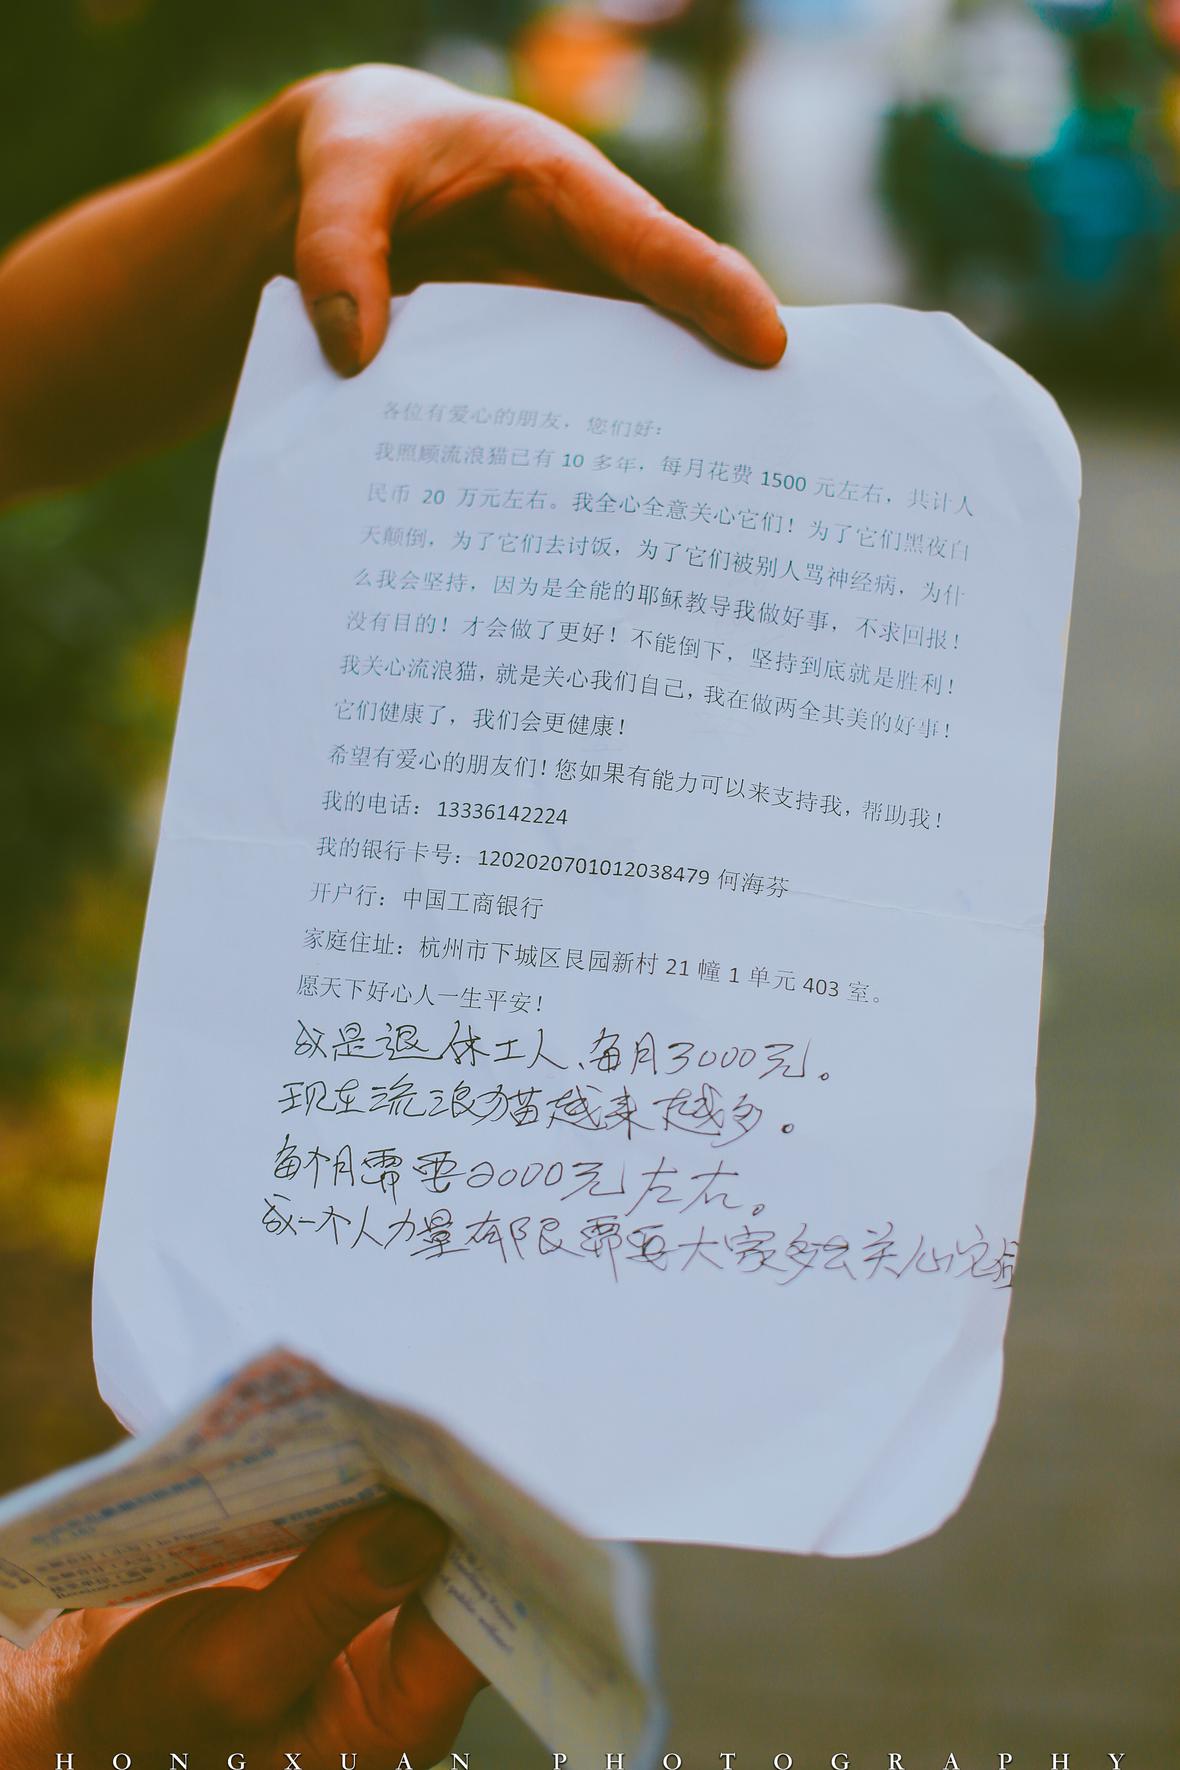 各位有爱心的朋友，您们好：
我照顾流浪猫已有 10 多年，每月花费 1500 元左右，共计人
民币 20 万元左右。我全心全意关心它们！为了它们黑夜白
天颠倒，为了它们去讨饭，为了它们被别人骂神经病，为什
么我会坚持，因为是全能的耶稣教导我做好事，不求回报！
没有目的！才会做了更好！不能倒下，坚持到底就是胜利！
我关心流浪猫，就是关心我们自己，我在做两全其美的好事！
它们健康了，我们会更健康！
希望有爱心的朋友们！您如果有能力可以来支持我，帮助我！
我的电话：13336142224
我的银行卡号：1202020701012038479 何海芬
开户行：中国工商银行
家庭住址：杭州市下城区艮园新村 21 幢 1 单元 403 室。
愿天下好心人一生平安！
我是退休工人、每月3000元。
现在流浪猫越来越多。
每个月需要2000元左右。
我一个人力量有限需要大家多去关心它们
HONGXUAN PHOTOGRAPHY